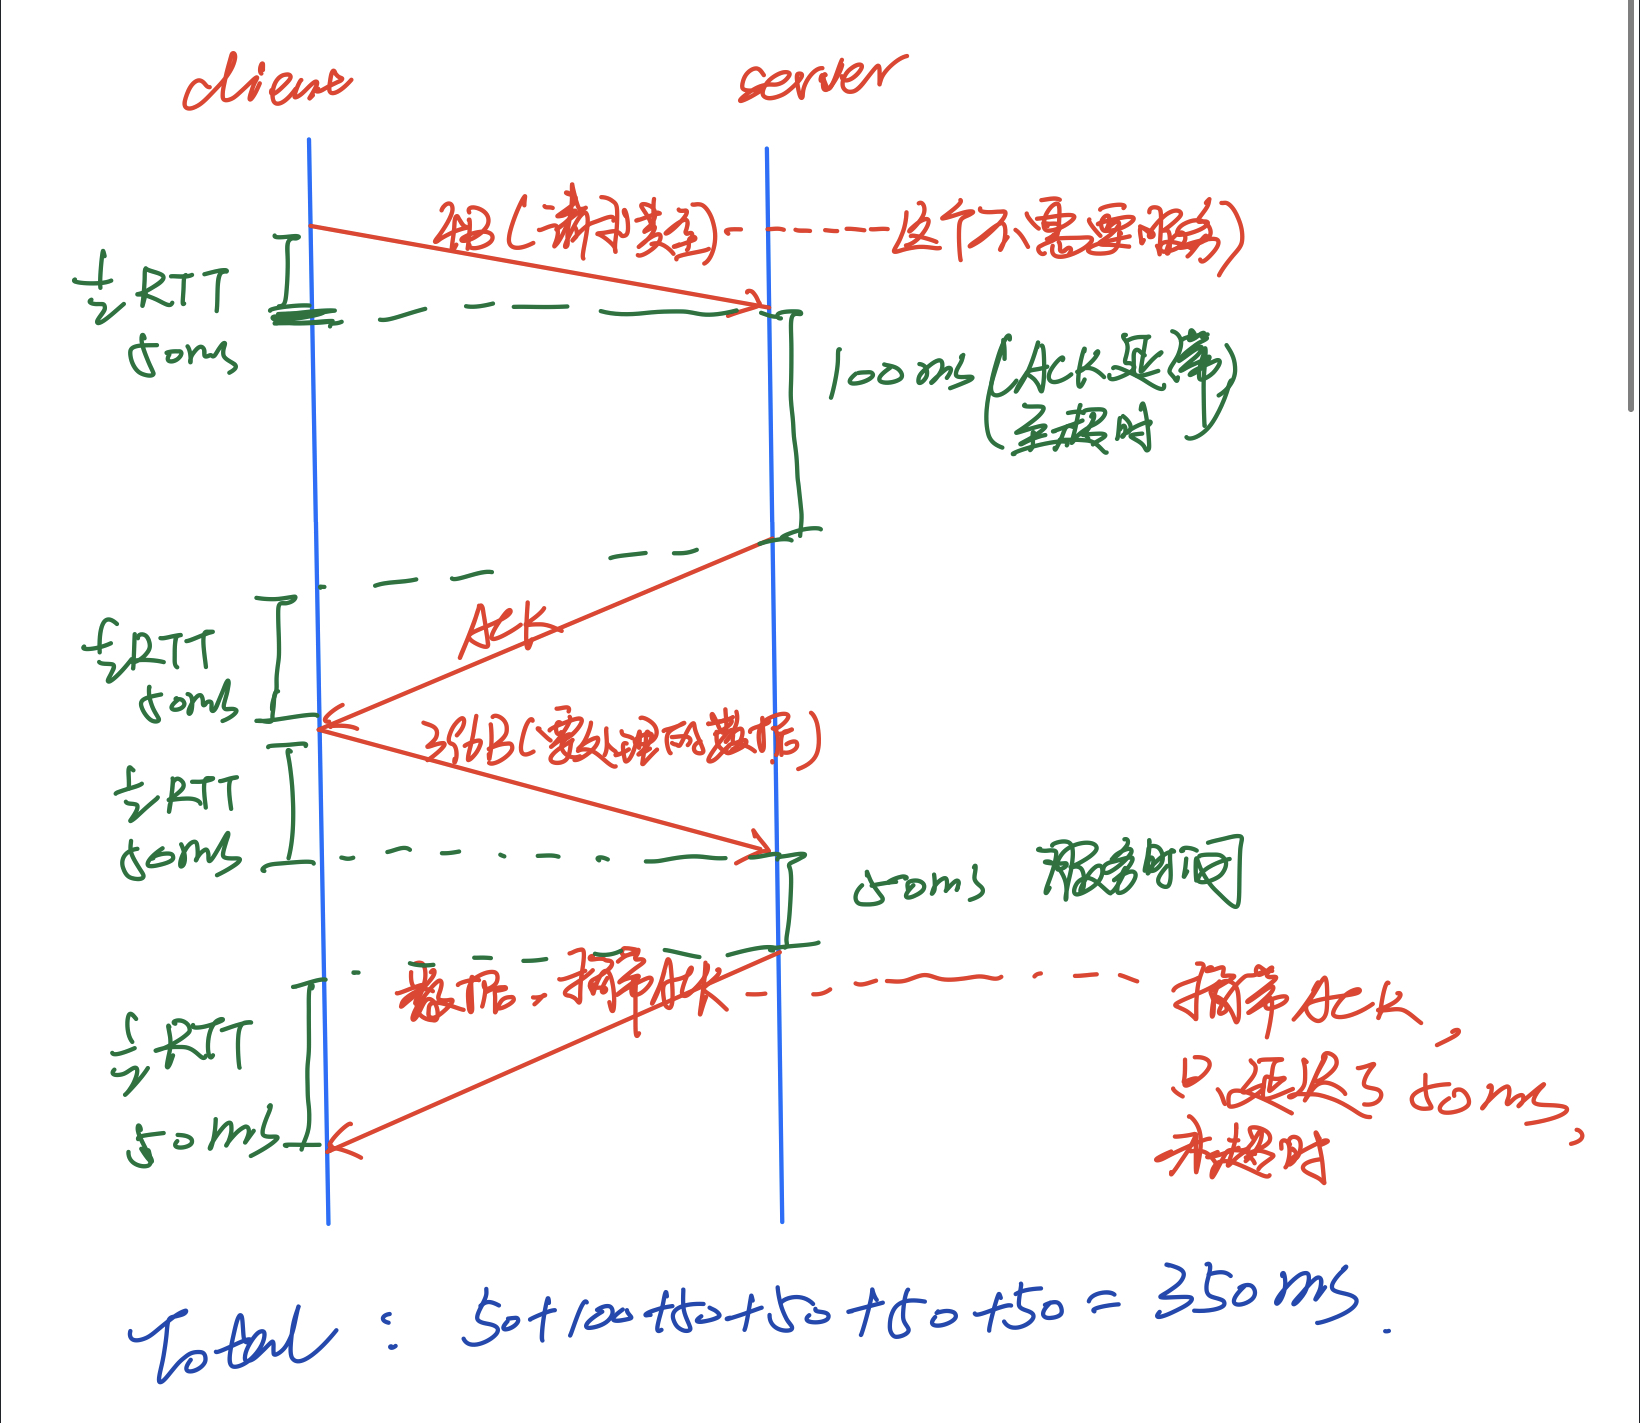 client
server
4B(请求类型)
这个不需要服务)
½ RTT
50ms
100ms (ACK延迟
至超时)
ACK
½ RTT
50ms
396B(要处理的数据)
½ RTT
50ms
50ms 服务时间
数据+捎带ACK
捎带ACK,
只延迟了50ms,
未超时
½ RTT
50ms
Total: 50+100+50+50+50+50=350ms.